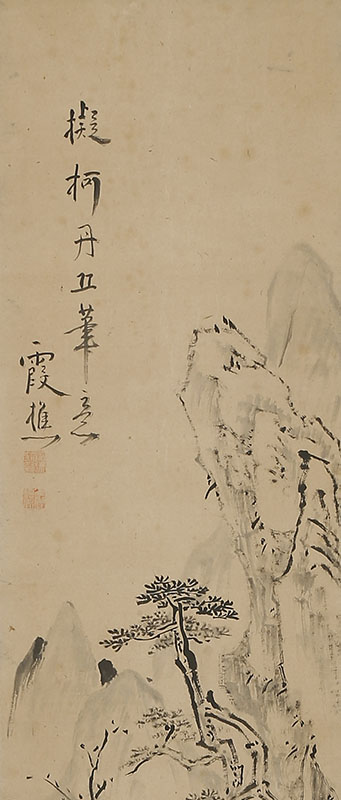 擬柯丹丘筆意
霞樵